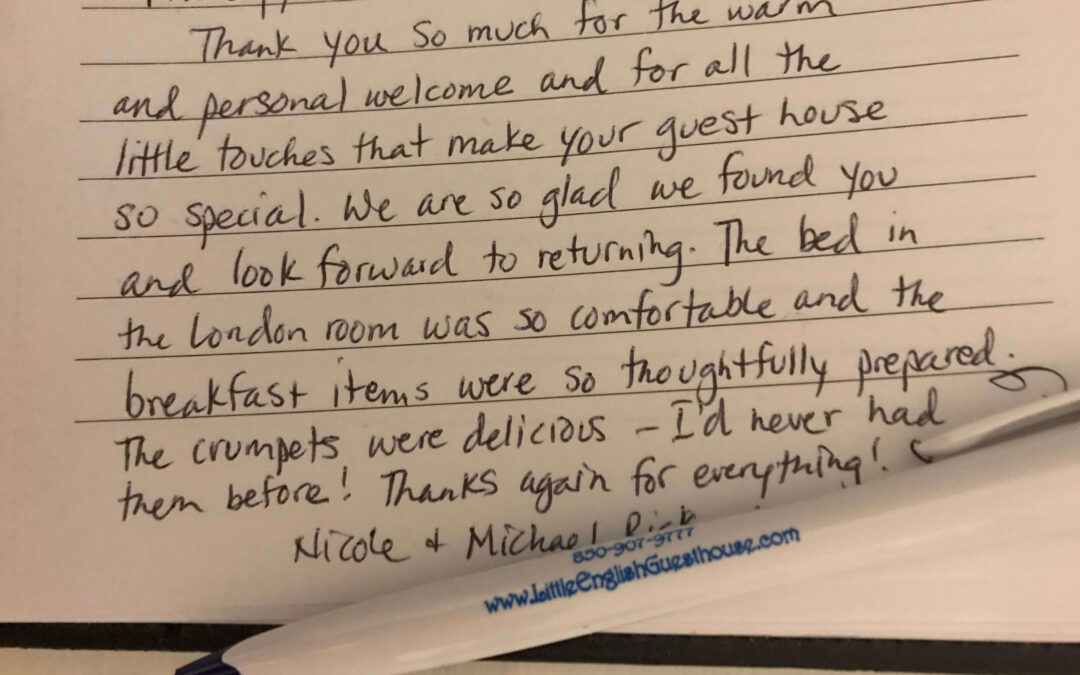 Thank you so much for the warm
and personal welcome and for all the
little touches that make your guest house
so special. We are so glad we found you
and look forward to returning. The bed in
the London room was so comfortable and the
breakfast items were so thoughtfully prepared.
The crumpets were delicious – I'd never had
them before! Thanks again for everything!
Nicole & Michael
850-907-9777
www.LittleEnglishGuesthouse.com